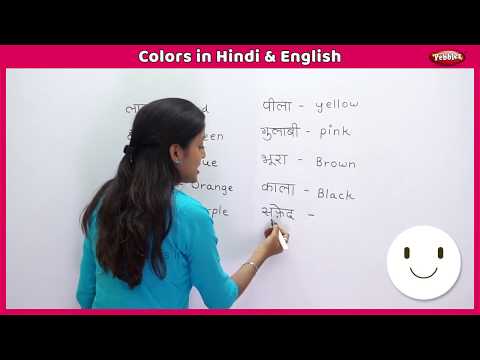 Colors in Hindi & English
Pebbles
ला d
een
ue
Orange
ple
पीला - yellow
गुलाबी - pink
भूरा - Brown
काला - Black
सफ़ेद -